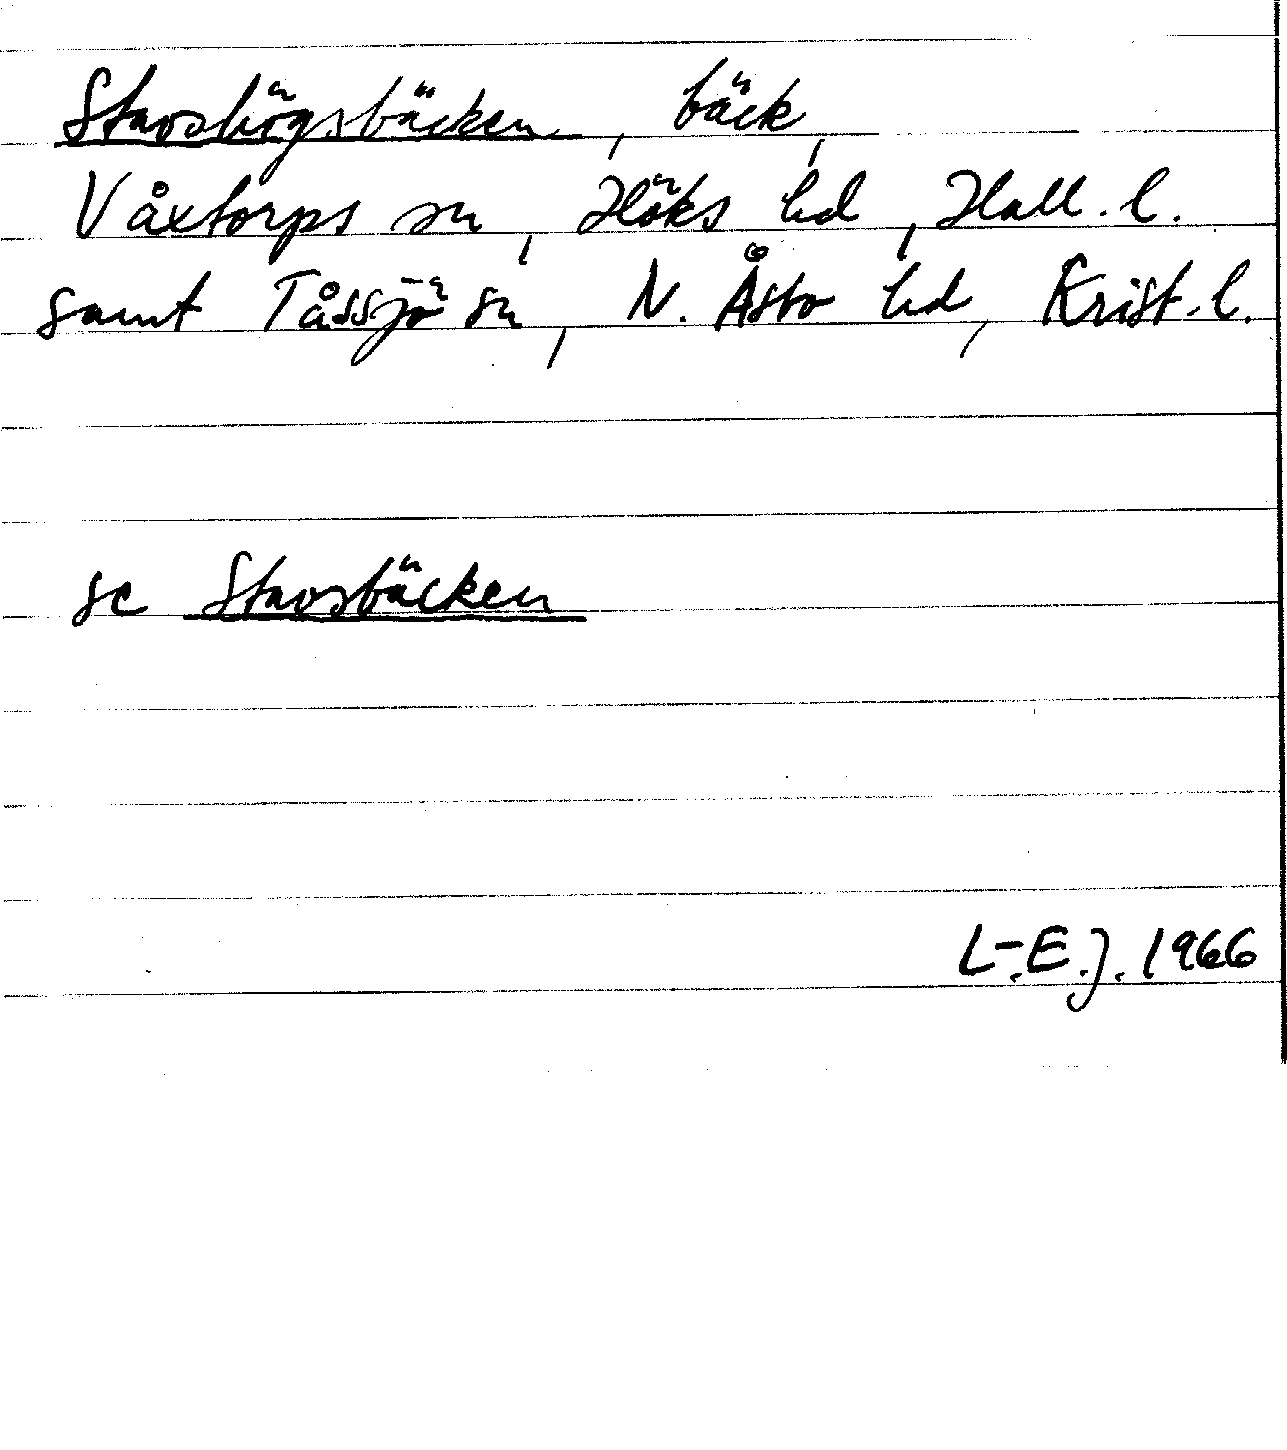 Stavshögsbäcken, bäck,
Våxtorps sn, Höks hd, Hall. l.
samt Tåssjö sn, N. Åsbo hd, Krist. l.
se Stavsbäcken
L.-E.J. 1966